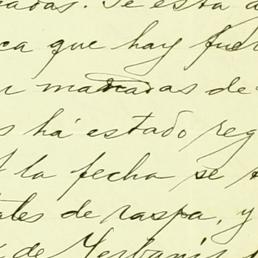 adas. Se está a
ca que hay fue
r manadas de
s há estado reg
la fecha se
ales de raspa, y
de